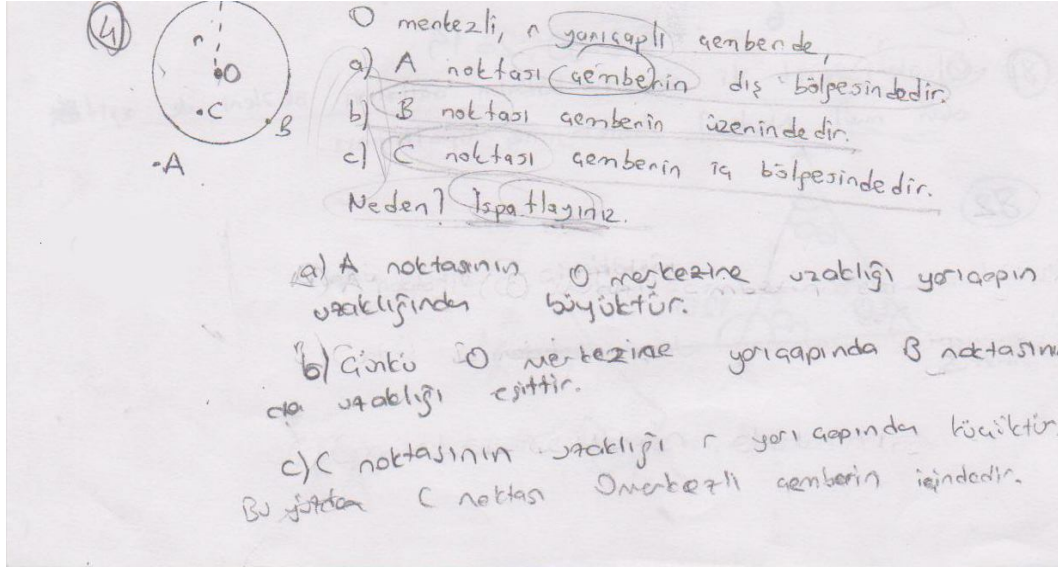 4
r
O
C
B
A
O merkezli, r yarıçaplı çemberde,
a) A noktası çemberin dış bölgesindedir.
b) B noktası çemberin üzerindedir.
c) C noktası çemberin iç bölgesindedir.
Neden? İspatlayınız.
a) A noktasının O merkezine uzaklığı yarıçapın
uzaklığından büyüktür.
b) Çünkü O merkezine yarıçapında B noktasının
da uzaklığı eşittir.
c) C noktasının uzaklığı r yarıçapında küçüktür
Bu yüzden C noktası O merkezli çemberin içindedir.